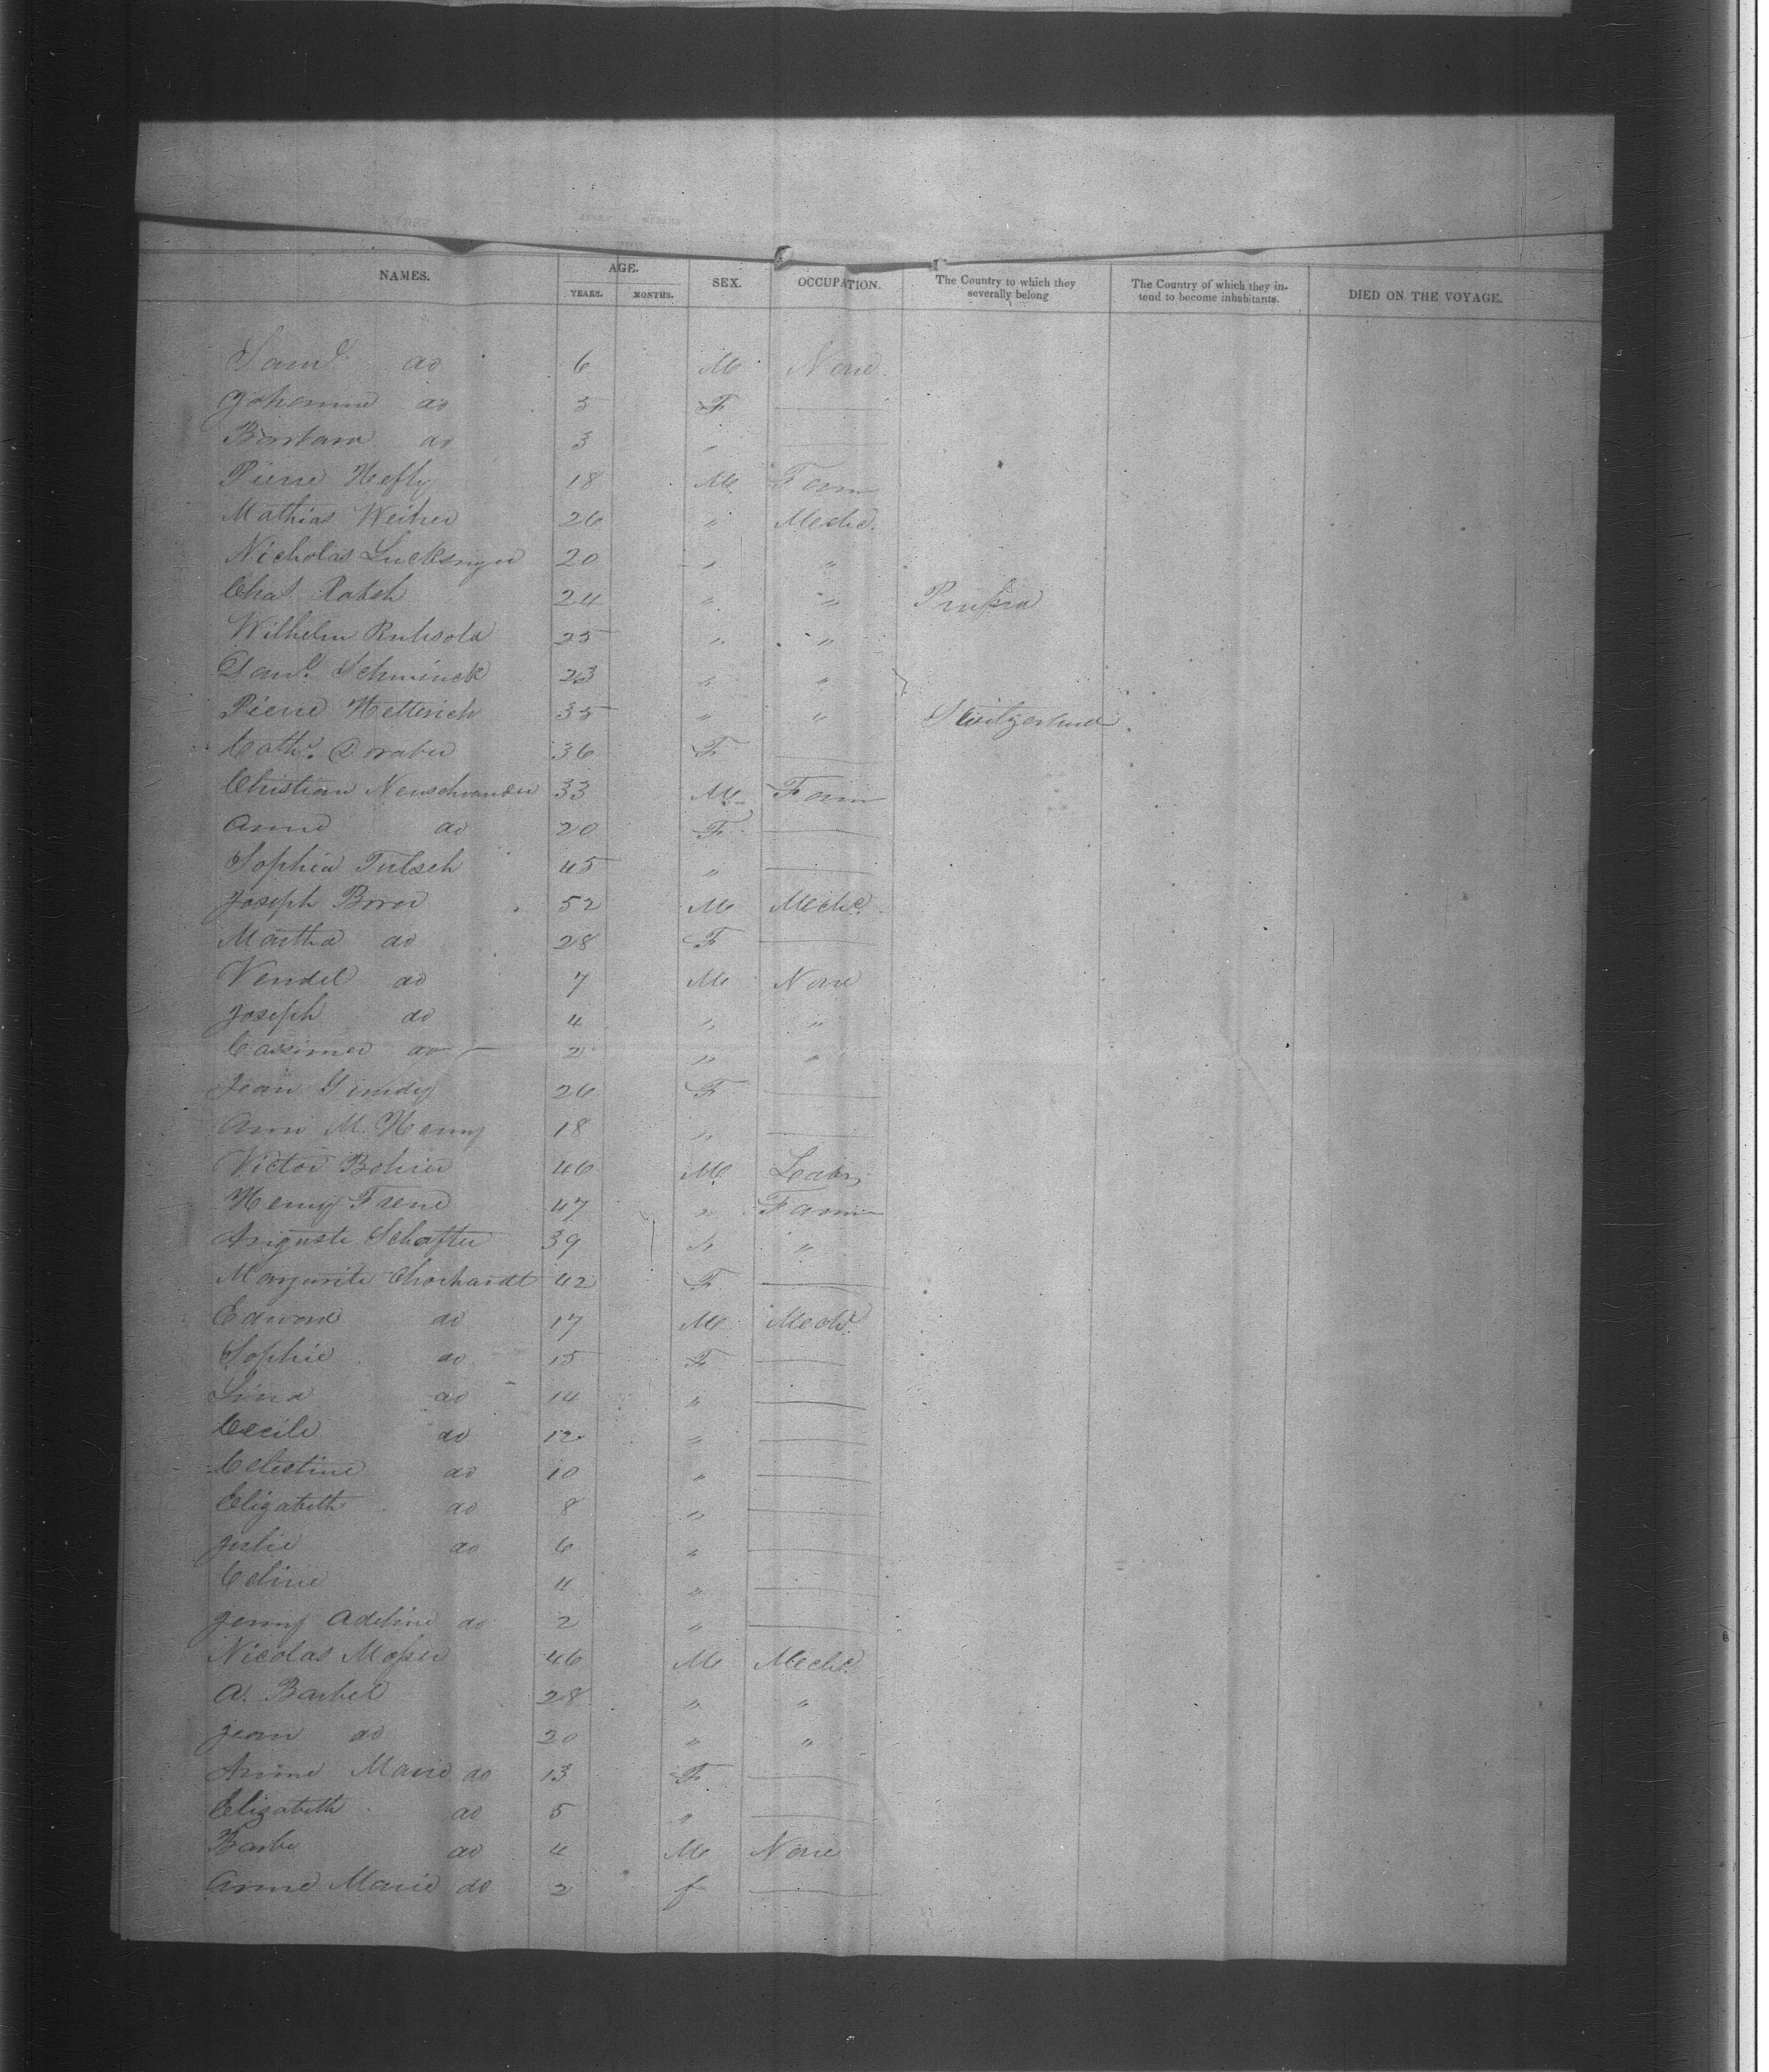 NAMES. AGE. YEARS. MONTHS. SEX. OCCUPATION. The Country to which they severally belong The Country of which they intend to become inhabitants. DIED ON THE VOYAGE.
Saml. do 6 M None
Johanne do 5 F
Barbara do 3 "
Pierre Hefly 18 M Farm
Mathias Weiher 26 " Mechc.
Nicholas Lucksinger 20 " "
Chas. Ratsh 24 " " Prussia
Wilhelm 25 " "
Danl. Schminck 23 " "
Pierre Hetterich 35 " " Switzerland
Cathe. 36 F
Christian Neuschwander 33 M Farm
Anne do 20 F
Sophia Tulsch 45 "
Joseph Borer 52 M Mechc.
Martha do 28 F
Vendel do 7 M None
Joseph do 4 " "
Cassimer do 2 " "
Jean Gundy 26 F
Ann M. Henny 18 "
Victor Bohier 46 M Labr
Henry Frene 47 " Farm
Auguste Schaffter 39 " "
Margurite 42 F
Edward do 17 M Mechc.
Sophie do 15 F
Lina do 14 "
Cecile do 12 "
Celestine do 10 "
Elizabeth do 8 "
Julie do 6 "
Celine 4 "
Jenny Adeline do 2 "
Nicolas Moser 46 M Mechc.
A. Barbel 28 " "
Jean do 20 " "
Anne Marie do 13 F
Elisabeth do 5 "
Barbe do 4 M None
Anne Marie do 2 f